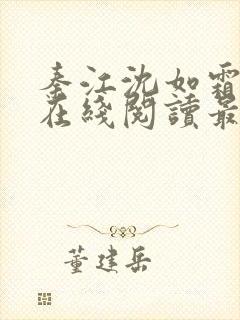 秦江沈如霜
在綫閱讀最
董建岳